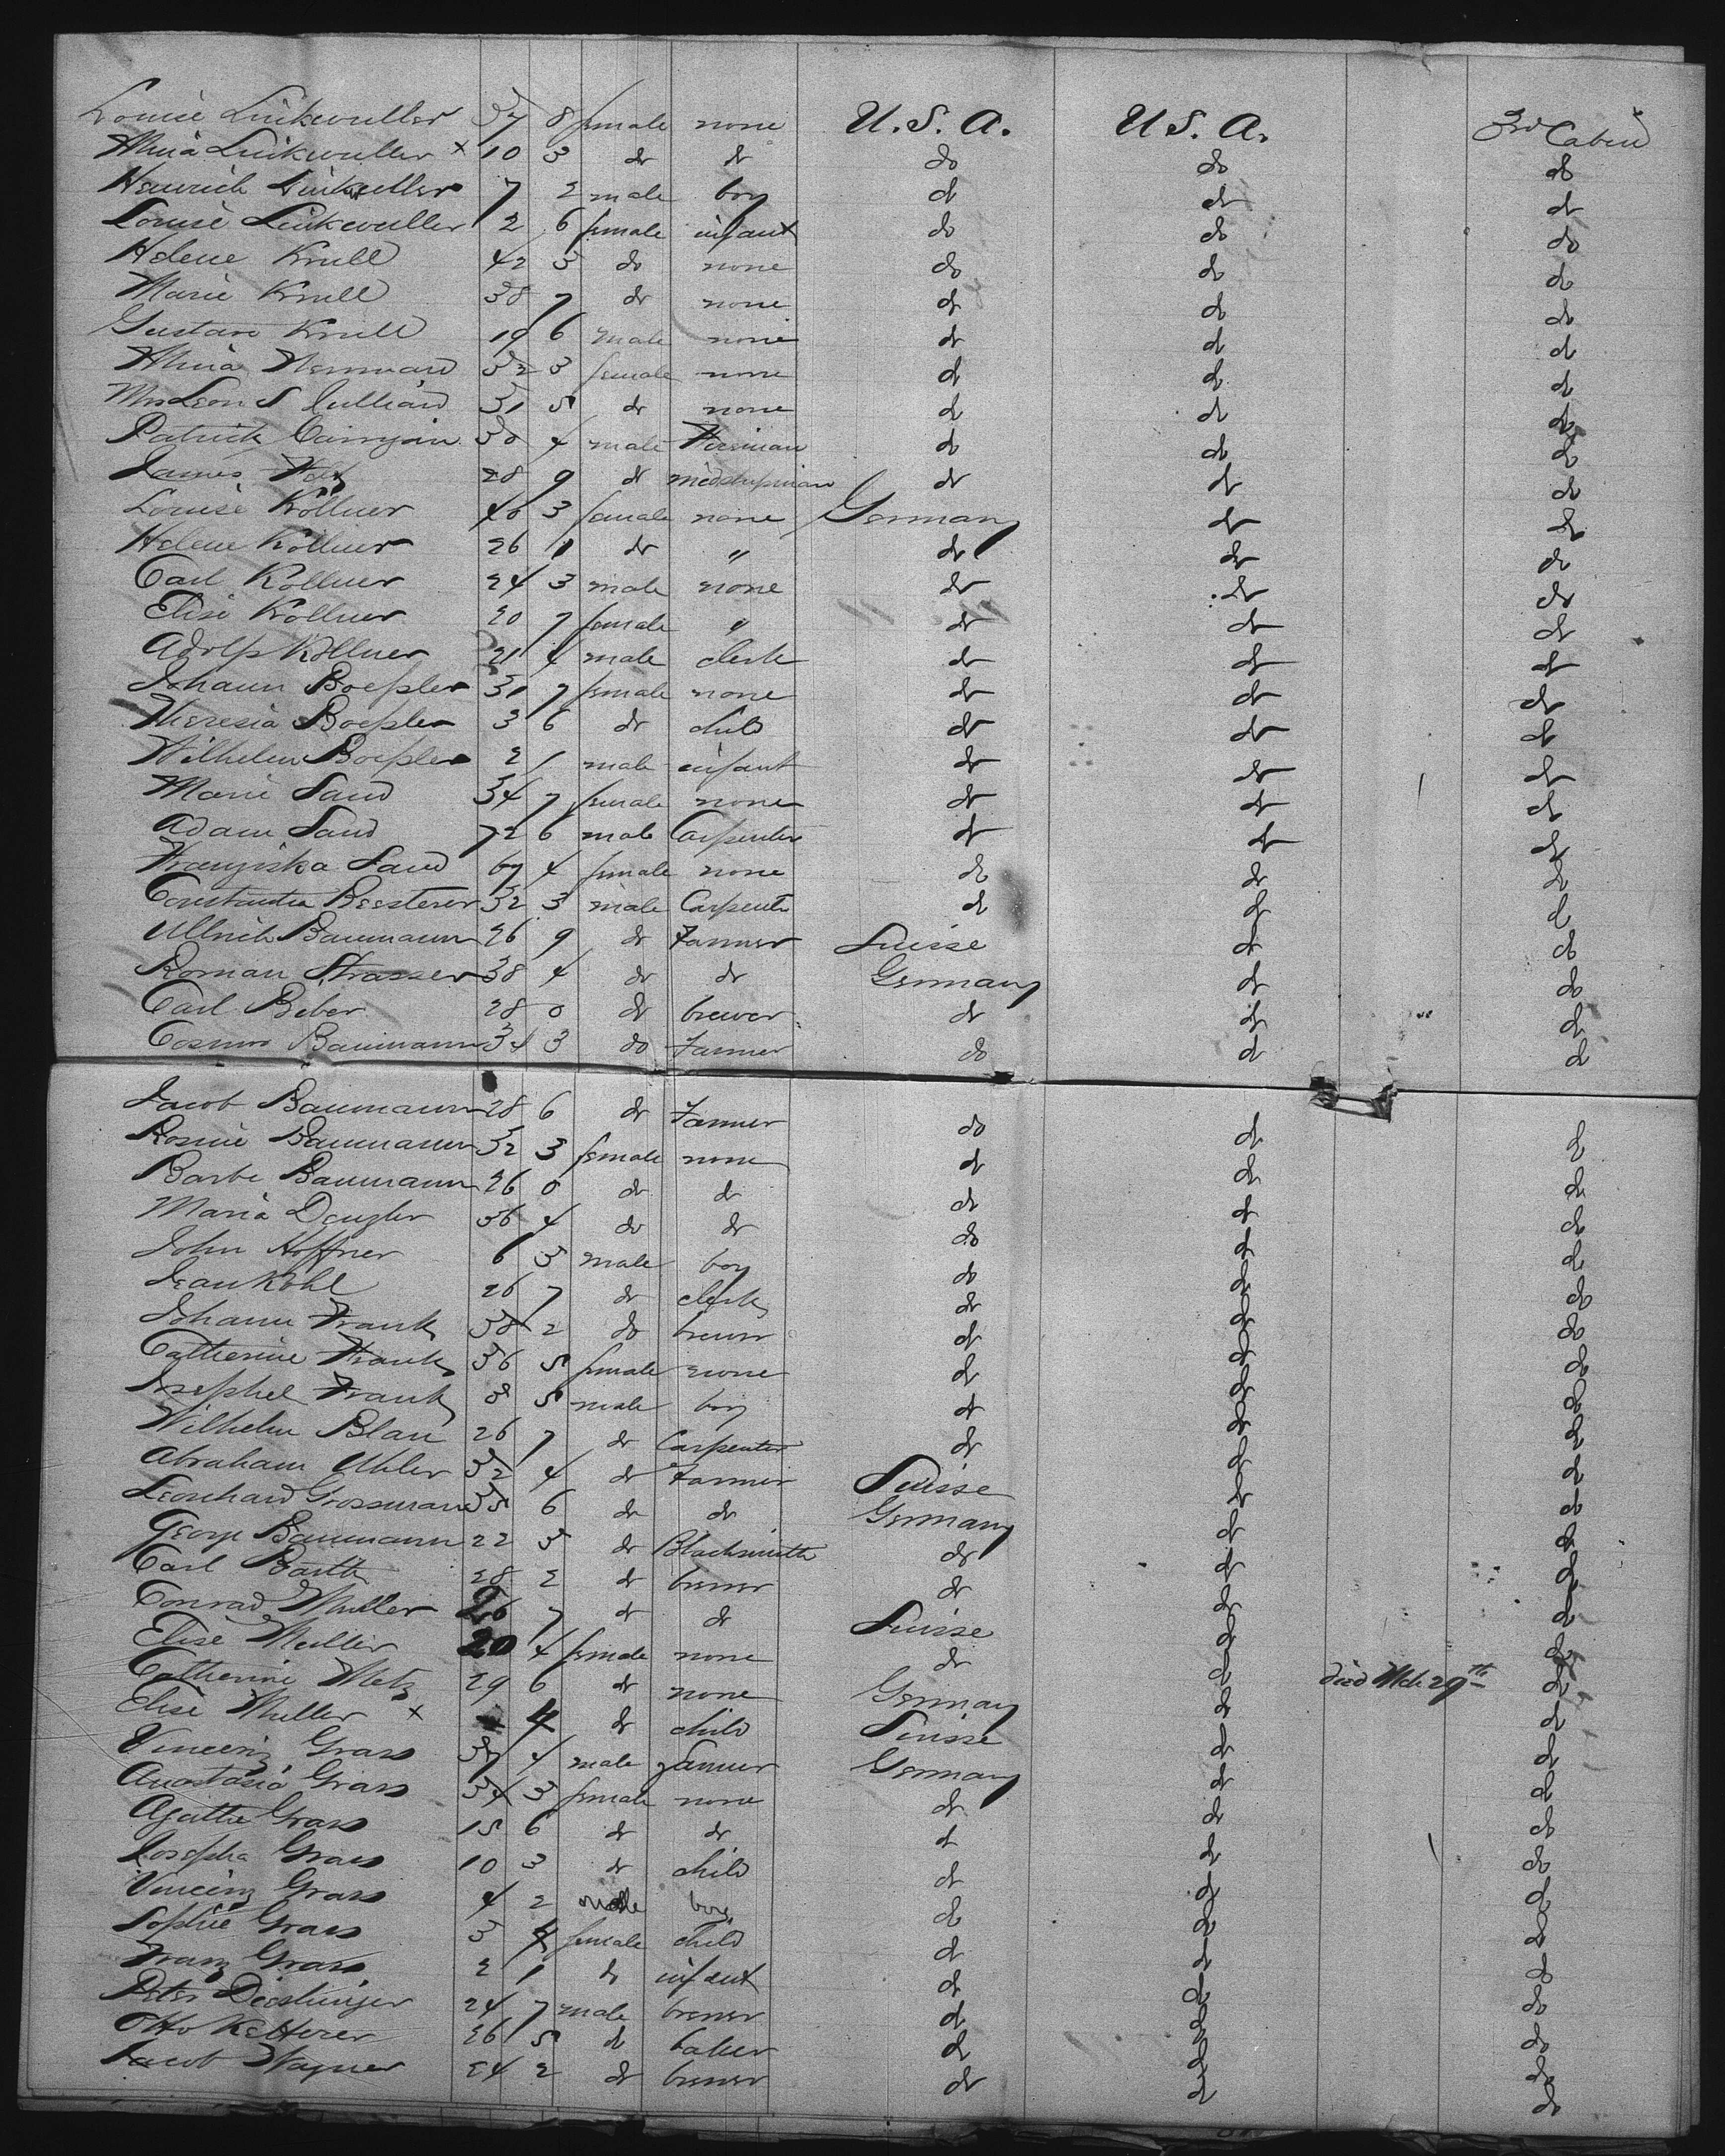 Louise Linkwuller 37 8 female none U.S.A. U.S.A. 3rd Cabin
Linkwuller x 10 3 do do do do do
Heinrich Linkwuller 7 2 male boy do do do
Louise Linkwuller 2 6 female infant do do do
Helene Krull 42 3 do none do do do
Marie Krull 38 7 do none do do do
Gustave Krull 19 6 male none do do do
32 3 female none do do do
Mrs Leon S Julliard 31 5 do none do do do
Patrick 30 4 male Fireman do do do
James 28 9 do midshipman do do do
Louise Köllner 46 3 female none Germany do do
Helene Köllner 26 1 do " do do do
Carl Köllner 24 3 male none do do do
Elise Köllner 20 7 female " do do do
Adolf Köllner 21 4 male clerk do do do
Johann Boessler 31 7 female none do do do
Theresia Boessler 3 6 do child do do do
Wilhelm Boessler 2 1 male infant do do do
Marie Sand 34 7 female none do do do
Adam Sand 72 6 male Carpenter do do do
Franziska Sand 69 4 female none do do do
32 3 male Carpenter do do do
Ullrich Baumann 26 9 do Farmer Suisse do do
Roman Strasser 38 4 do do Germany do do
Carl Beber 28 0 do brewer do do do
Cosmos Baumann 34 3 do Farmer do do do
Jacob Baumann 28 6 do Farmer do do do
Rosine Baumann 32 3 female none do do do
Barbe Baumann 26 0 do do do do do
Maria Dengler 36 4 do do do do do
John Hoffner 6 3 male boy do do do
Jean Kohl 26 7 do clerk do do do
Johann Frank 38 2 do brewer do do do
Catherine Frank 36 5 female none do do do
Josephel Frank 8 5 male boy do do do
Wilhelm Blau 26 7 do Carpenter do do do
Abraham Uhler 32 4 do Farmer Suisse do do
Leonhard Grossmann 35 6 do do Germany do do
George Baumann 22 3 do Blacksmith do do do
Carl Barth 28 2 do brewer do do do
Conrad Muller 26 7 do do Suisse do do
Elise Muller 20 4 female none do do do
Catherine Metz 29 6 do none Germany do do
Elise Muller x 4 do child Suisse do died Mch 29th do
Vincenz Grass 37 4 male Farmer Germany do do
Anastasia Grass 34 3 female none do do do
Agatha Grass 15 6 do do do do do
Josepha Grass 10 3 do child do do do
Vincenz Grass 4 2 male boy do do do
Sophie Grass 3 4 female child do do do
Franz Grass 2 1 do infant do do do
Peter 24 7 male brewer do do do
Otto Ketterer 26 5 do baker do do do
Jacob Wagner 24 2 do brewer do do do